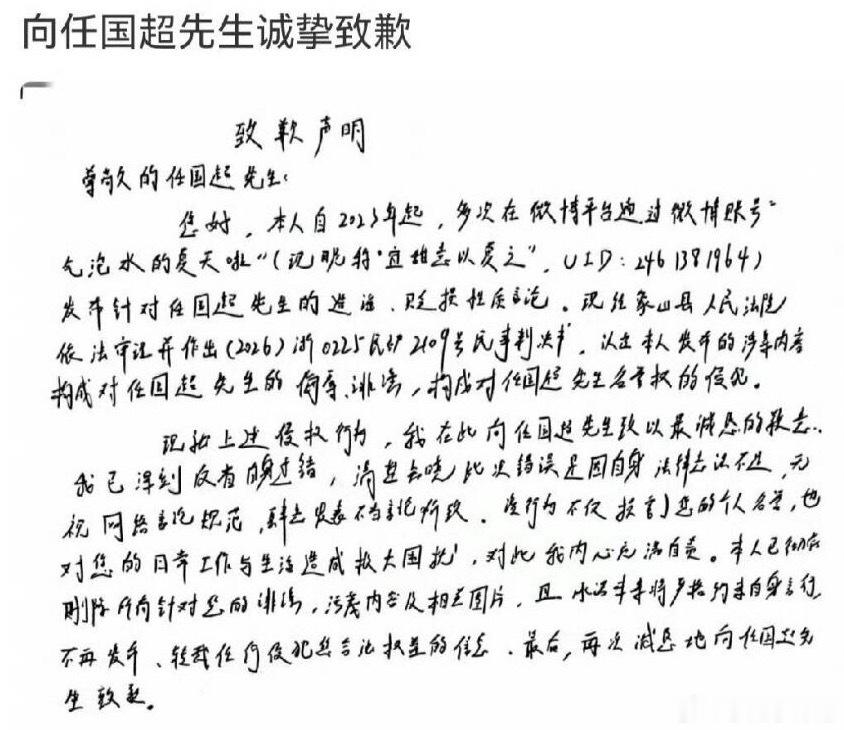 向任国超先生诚挚致歉
致歉声明
尊敬的任国超先生：
您好，本人自2023年起，多次在微博平台通过微博账号"
气泡水的夏天啦"（现昵称"宜雄志以夏之"，UID：2461381964）
发布针对任国超先生的造谣、贬损性质言论。现经象山县人民法院
依法审理并作出（2026）浙0225民初2109号民事判决书，认定本人发布的涉案内容
构成对任国超先生的侮辱、诽谤，构成对任国超先生名誉权的侵犯。
现就上述侵权行为，我在此向任国超先生致以最诚恳的歉意。
我已深刻反省自身过错，清楚知晓此次错误是因自身法律意识不足，无
视网络言论规范，肆意发表不当言论所致。该行为不仅损害了您的个人名誉，也
对您的日常工作与生活造成极大困扰，对此我内心充满自责。本人已彻底
删除所有针对您的诽谤，污蔑内容及相关图片，且承诺未来将严格约束自身言行，
不再发布、转载任何侵犯您合法权益的信息。最后，再次诚恳地向任国超先
生致歉。